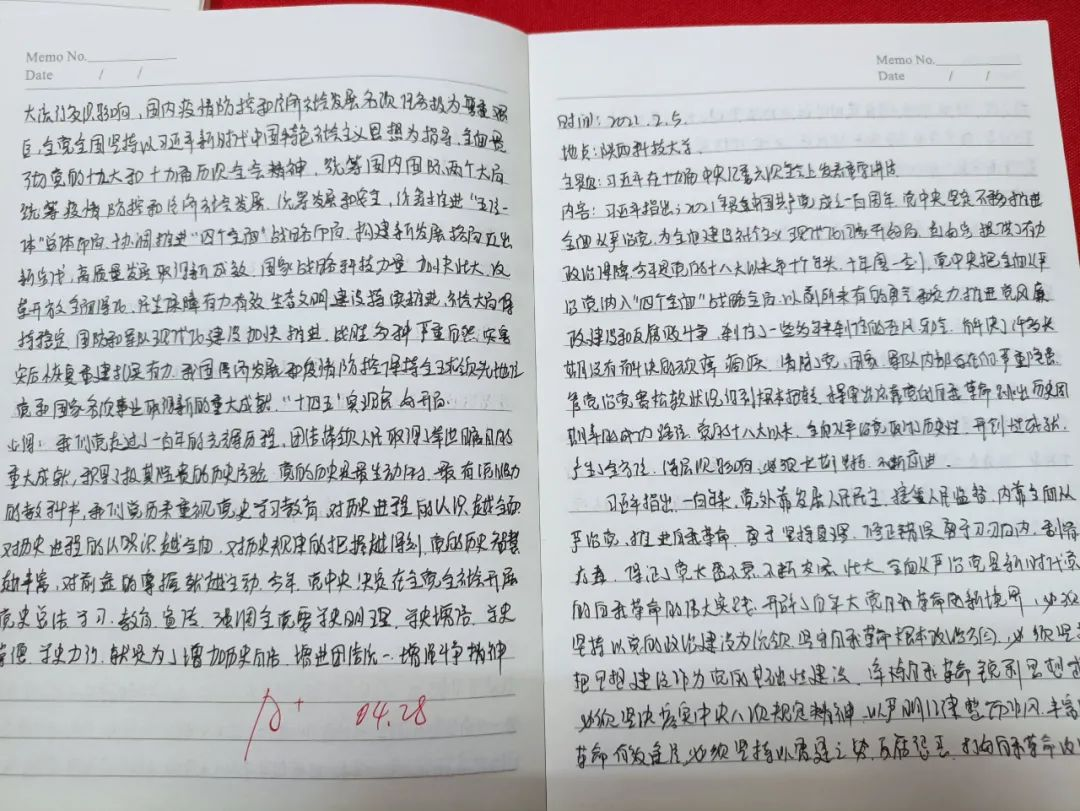 Memo No.
Date / /
大流行负面影响，国内疫情防控和经济社会发展各项任务极为繁重艰
巨，全党全国坚持以习近平新时代中国特色社会主义思想为指导，全面贯
彻党的十九大和十九届历次全会精神，统筹国内国际两个大局
统筹疫情防控和经济社会发展，统筹发展和安全，统筹推进“五位一
体”总体布局，协调推进“四个全面”战略布局，构建新发展格局迈出
新步伐，高质量发展取得新成效，国家战略科技力量加快壮大，改
革开放全面深化，民生保障有力有效，生态文明建设持续推进，社会大局保
持稳定，国防和军队现代化建设加快推进，战胜多种严重自然灾害
灾后恢复重建扎实有力，我国经济发展和疫情防控保持全球领先地位
党和国家各项事业取得新的重大成就，“十四五”实现良好开局。
心得：我们党走过了一百年的光辉历程，团结带领人民取得了举世瞩目的
重大成就，积累了极其宝贵的历史经验，党的历史是最生动的、最有说服力
的教科书，我们党历来重视党史学习教育，对历史进程的认识越全面
对历史进程的认识越全面，对历史规律的把握越深刻，党的历史智慧
越丰富，对前途的掌握就越主动，今年，党中央决定在全党全社会开展
党史总结、学习、教育、宣传，强调全党要学史明理、学史增信、学史
崇德、学史力行，就是为了增加历史自信、增进团结统一、增强斗争精神
A+ 04.28
Memo No.
Date / /
时间：2022.2.5.
地点：陕西科技大学
主题：习近平在十九届中央纪委六次全会上发表重要讲话
内容：习近平指出，2021年是全国共产党成立一百周年，党中央坚定不移推进
全面从严治党，为全面建设社会主义现代化国家开好局、起好步提供了有力
政治保障，今年是党的十八大以来第十个年头，十年磨一剑，党中央把全面从严
治党纳入“四个全面”战略全局，以前所未有的勇气和定力推进党风廉
政建设和反腐败斗争，刹住了一些多年未刹住的歪风邪气，解决了许多长
期没有解决的顽瘴痼疾，清除了党、国家、军队内部存在的严重隐患
管党治党宽松软状况得到根本扭转，探索出依靠党的自我革命跳出历史周
期率的成功路径，党的十八大以来，全面从严治党取得历史性、开创性成就，
产生了全方位、深层次影响，必须长期坚持、不断前进。
习近平指出，一百年来，党外靠发展人民民主、接受人民监督，内靠全面从
严治党、推进自我革命，勇于坚持真理、修正错误，勇于刀刃向内、刮骨
疗毒，保证了党长盛不衰、不断发展壮大，全面从严治党是新时代党
的自我革命的伟大实践，开辟了百年大党自我革命的新境界，必须
坚持以党的政治建设为统领，坚守自我革命根本政治方向，必须坚
把思想建设作为党的基础性建设，淬炼自我革命锐利思想武
必须坚决落实中央八项规定精神，以严明纪律整饬作风，丰富
革命有效途径，必须坚持以雷霆之势，反腐惩恶，打好自我革命攻